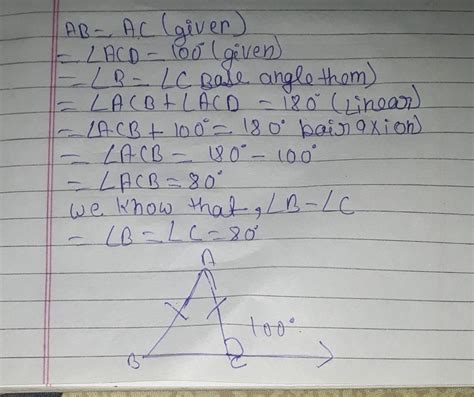 AB = AC (given)
= ∠ACD = 100° (given)
= ∠B = ∠C Base angle them)
= ∠ACB + ∠ACD = 180° (Linear)
= ∠ACB + 100° = 180° bair axion)
= ∠ACB = 180° - 100°
= ∠ACB = 80°
we know that, ∠B = ∠C
= ∠B = ∠C = 80°
A
100°
B
C